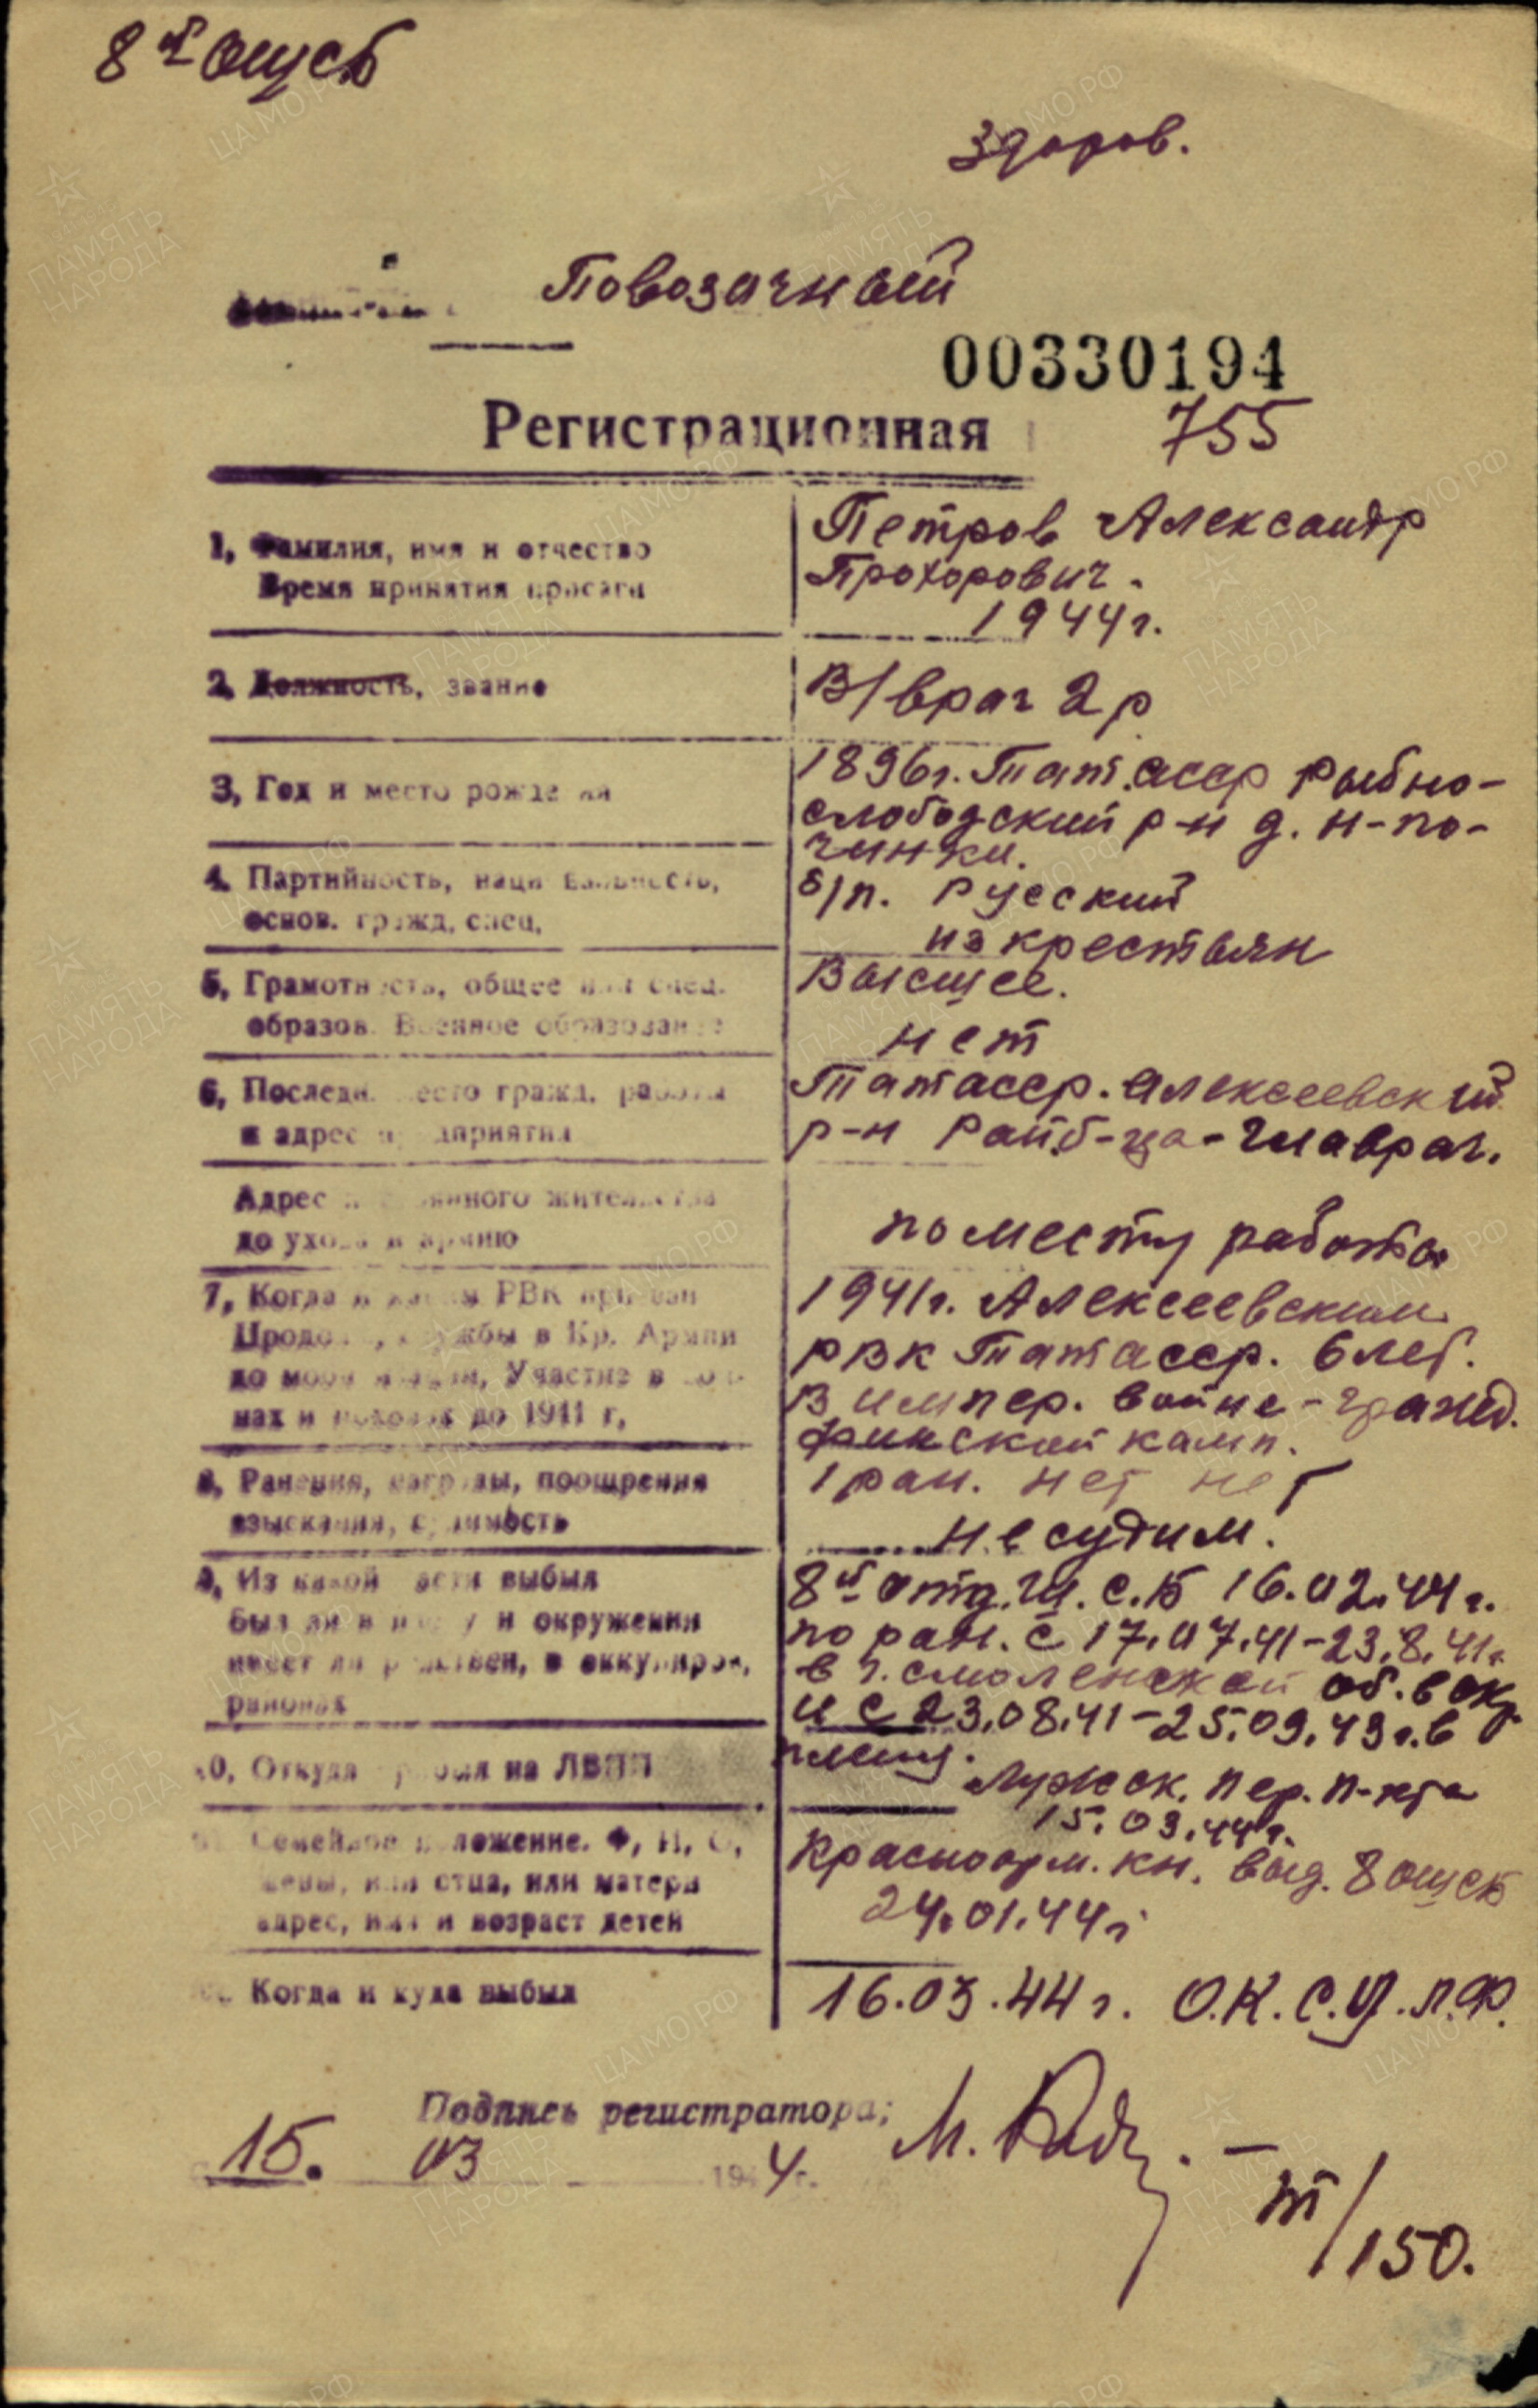 8й ошсб
Здоров.
Повозочный
00330194
Регистрационная
755
1, Фамилия, имя и отчество
Время принятия присяги
Петров Александр
Прохорович.
1944г.
2, Должность, звание
В/врач 2р
3, Год и место рождения
1896г. Тат.асср Рыбно-
слободский р-н д. Н-по-
чинки.
4. Партийность, национальность,
основ. гражд. спец.
б/п. Русский
из крестьян
5, Грамотность, общее или спец.
образов. Военное образование
Высшее.
нет
6, Последн. место гражд. работы
и адрес предприятия
Татасср. Алексеевский
р-н Райб-ца-Главрач.
Адрес постоянного жительства
до ухода в армию
по месту работы
7, Когда и каким РВК призван
Продолж. службы в Кр. Армии
до мобилизации, Участие в вой-
нах и походах до 1941 г,
1941г. Алексеевским
РВК Татасср. 6 лет.
В импер. войне-гражд.
финской камп.
8, Ранения, награды, поощрения
взыскания, судимость
1 ран. нет нет
Не судим.
9, Из какой части выбыл
был ли в плену и окружении
имеет ли родствен, в оккупиров,
районах
8й отд.ш.с.б 16.02.44г.
по ран. с 17.07.41-23.8.41г.
в г. смоленской об. в окр.
и с 23.08.41-25.09.43г. в
плену.
10, Откуда прибыл на ЛВПП
Лужск. пер. п-кта
15.03.44г.
Семейное положение. Ф, И, О,
жены, или отца, или матери
адрес, имя и возраст детей
Красноарм. кн. выд. 8 ошсб
24.01.44г
Когда и куда выбыл
16.03.44г. О.К.С.У.Л.Ф.
Подпись регистратора;
15. 03 1944г.
т/150.